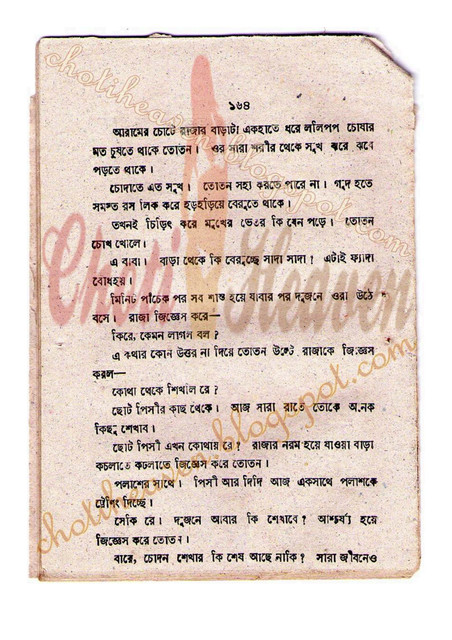 choti heaven.blogspot.com
১৬৪
আরামের চোটে রাজার বাড়াটা একহাতে ধরে ললিপপ চোষার
মত চুষতে থাকে তোতন। ওর সারা শরীর থেকে সুখ ঝরে ঝরে
পড়তে থাকে।
চোদাতে এত সুখ। তোতন সহ্য করতে পারে না। গুদ হতে
সমস্ত রস লিক করে হড়হড়িয়ে বেরুতে থাকে।
তখনই চিড়িৎ করে মুখের ভেতর কি যেন পড়ে। তোতন
চোখ খোলে।
এ বাবা। বাড়া থেকে কি বেরুচ্ছে সাদা সাদা? এটাই ফ্যাদা
বোধহয়।
মিনিট পাঁচেক পর সব শান্ত হয়ে যাবার পর দুজনে ওরা উঠে
বসে। রাজা জিজ্ঞেস করে—
কিরে, কেমন লাগল বল?
এ কথার কোন উত্তর না দিয়ে তোতন উল্টে রাজাকে জিজ্ঞেস
করল—
কোথা থেকে শিখলি রে?
ছোট পিসীর কাছ থেকে। আজ সারা রাতে তোকে অনেক
কিছু শেখাব।
ছোট পিসী এখন কোথায় রে? রাজার নরম হয়ে যাওয়া বাড়া
কচলাতে কচলাতে জিজ্ঞেস করে তোতন।
পলাশের সাথে। পিসী আর দিদি আজ একসাথে পলাশকে
ট্রেণিং দিচ্ছে।
সেকি রে। দুজনে আবার কি শেখাবে? আশ্চর্য্য হয়ে
জিজ্ঞেস করে তোতন।
বারে, চোদন শেখার কি শেষ আছে নাকি? সারা জীবনেও
Choti Heaven
chotiheaven.blogspot.com